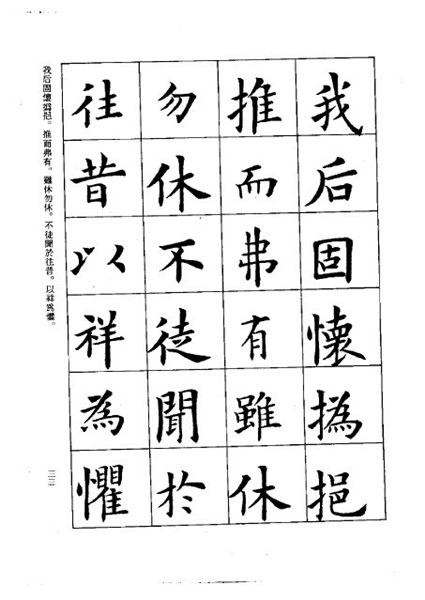 我后固懷撝挹
推而弗有雖休
勿休不徒聞於
往昔以祥為懼
我后固懷撝挹。推而弗有。雖休勿休。不徒聞於往昔。以祥爲懼。